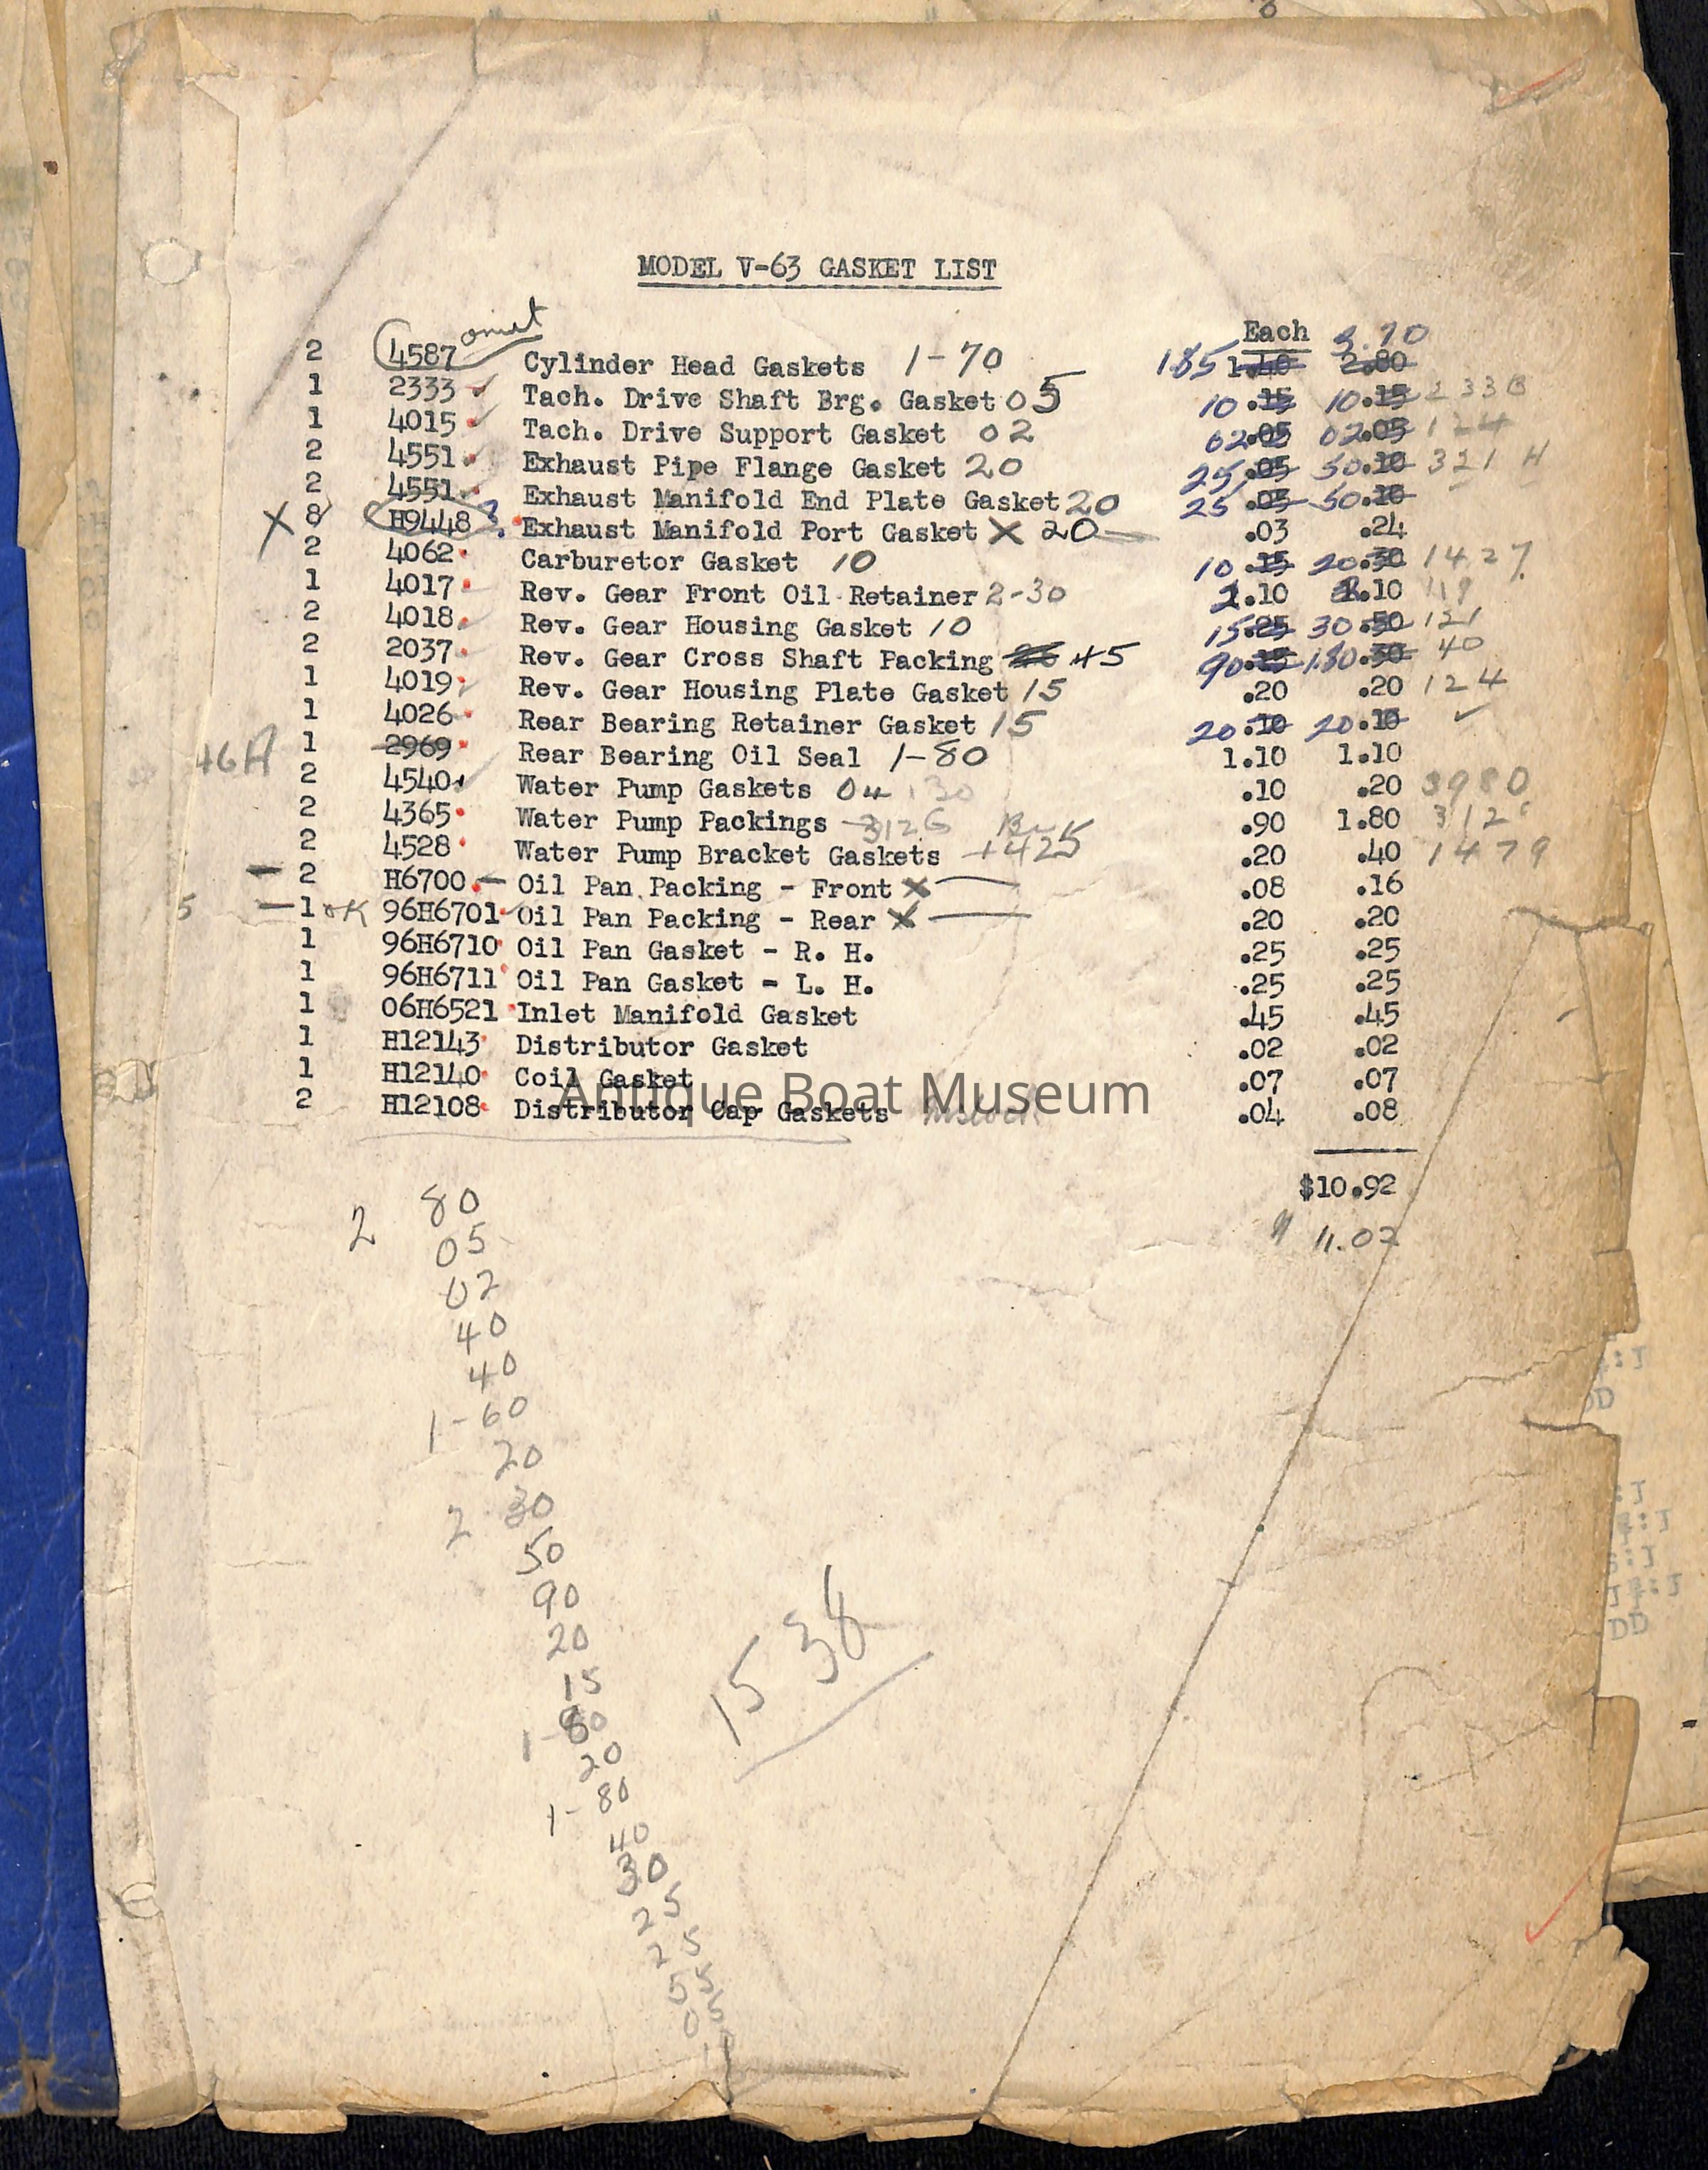 MODEL V-63 GASKET LIST
Each 3.70
2 4587 omit Cylinder Head Gaskets 1-70 185 1.40 2.80
1 2333 Tach. Drive Shaft Brg. Gasket 05 10 .15 10 .15 233B
1 4015 Tach. Drive Support Gasket 02 02 .05 02 .05 124
2 4551 Exhaust Pipe Flange Gasket 20 25 .05 50 .10 321 H
2 4551 Exhaust Manifold End Plate Gasket 20 25 .05 50 .10
X 8 H9448 ? Exhaust Manifold Port Gasket X 20 .03 .24
2 4062 Carburetor Gasket 10 10 .15 20 .30 1427
1 4017 Rev. Gear Front Oil Retainer 2-30 2.10 2.10 119
2 4018 Rev. Gear Housing Gasket 10 15 .25 30 .50 121
2 2037 Rev. Gear Cross Shaft Packing 45 90 .15 1.80 .30 40
1 4019 Rev. Gear Housing Plate Gasket 15 .20 .20 124
1 4026 Rear Bearing Retainer Gasket 15 20 .10 20 .10
46A 1 2969 Rear Bearing Oil Seal 1-80 1.10 1.10
2 4540 Water Pump Gaskets 04 30 .10 .20 3980
2 4365 Water Pump Packings 3126 .90 1.80 312
2 4528 Water Pump Bracket Gaskets 1425 .20 .40 1479
— 2 H6700 — Oil Pan Packing - Front X — .08 .16
5 — 1 OK 96H6701 Oil Pan Packing - Rear X — .20 .20
1 96H6710 Oil Pan Gasket - R. H. .25 .25
1 96H6711 Oil Pan Gasket - L. H. .25 .25
1 06H6521 Inlet Manifold Gasket .45 .45
1 H12143 Distributor Gasket .02 .02
1 H12140 Coil Gasket .07 .07
Antique Boat Museum
2 H12108 Distributor Cap Gaskets .04 .08
$10.92
" 11.02
2 80
05
02
40
40
1-60
20
2 30
50
90
20
15
1-80
20
1-80
40
30
25
25
55
05
15 38